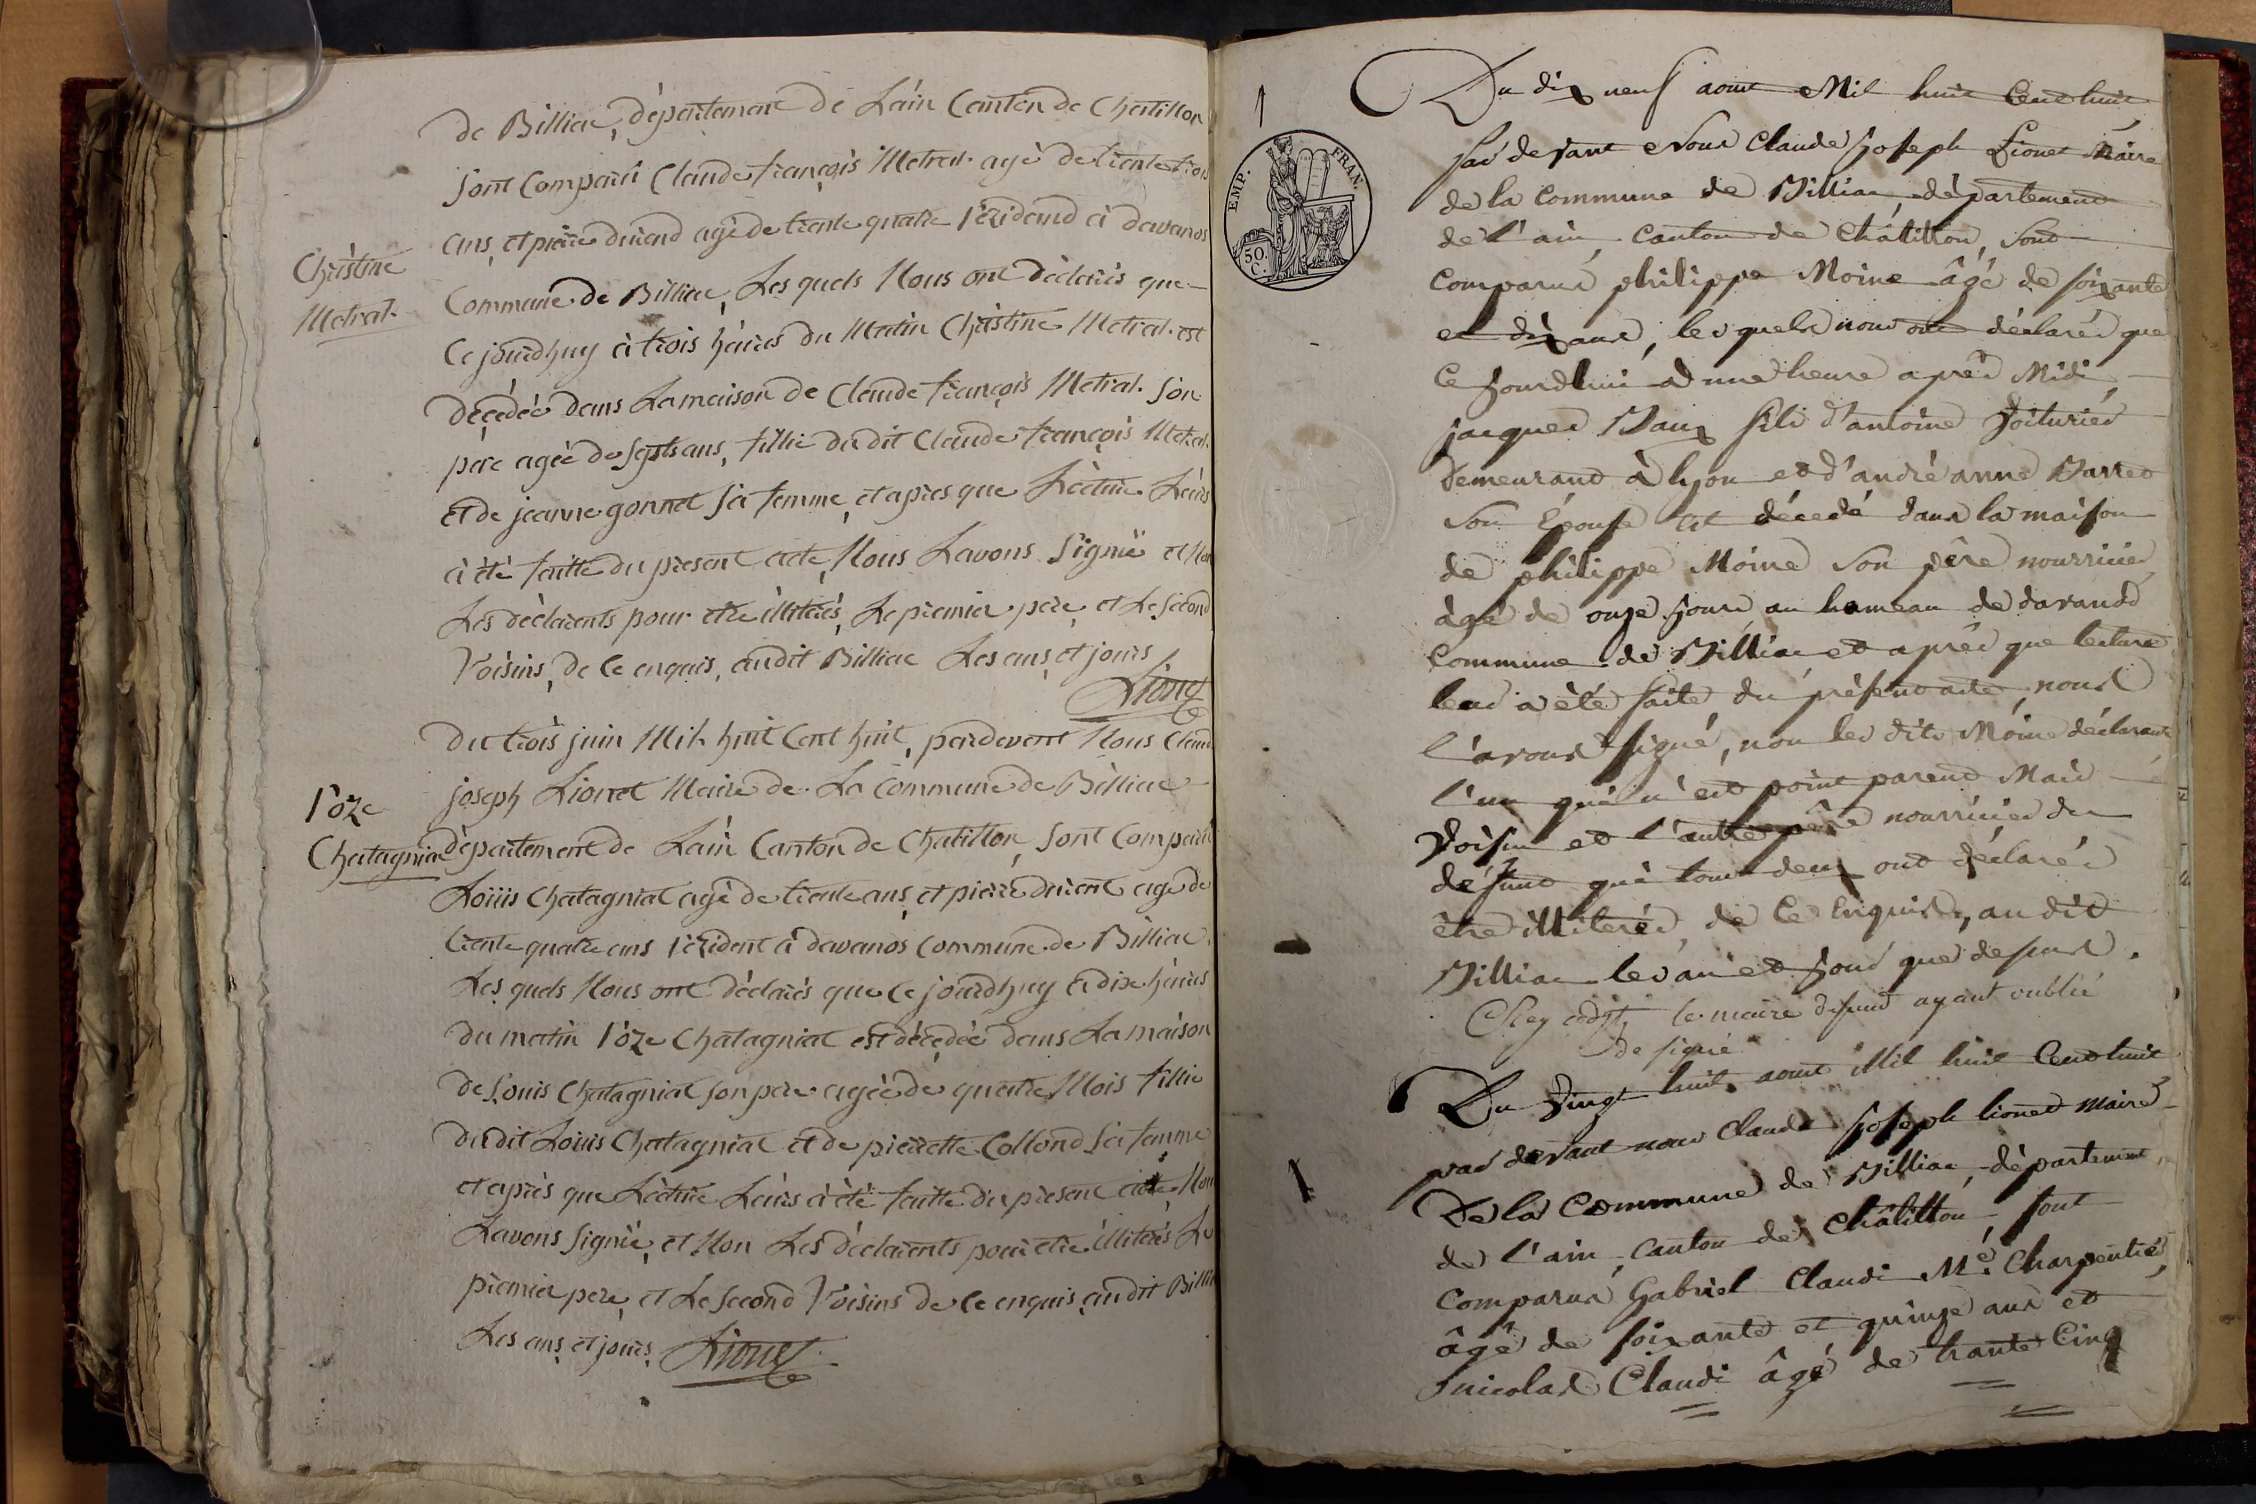 de Billiac, département de Lain Canton de Chatillon
Sont Comparû Claude françois Metral. agé de trente trois
ans, et pierre durand agé de trente quatre rézidand à davanos
Christine
Metral.
Commune de Billiac, Les quels Nous ont déclarés que
Ce jourdhuy à trois héures du Matin Christine Metral. est
décédée dans La maison de Claude françois Metral. son
pere agée de septs ans, fillie du dit Claude françois Metral.
et de jeanne gonnet Sa femme, et apres que Lecture Leurs
à été faitte du present acte, Nous Lavons Signé et Non
Les déclarents pour etre illiterés, Le premier pere, et Le Second
Voisins, de Ce enquis, audit Billiac Les ans, et jours
Lionet
du trois juin Mil. huit Cent huit, pardevent Nous Claude
joseph Lionet Maire de La Commune de Billiac
rôze
Chatagniat
département de Lain Canton de Chatillon, Sont Comparû
Loüis Chatagniat agé de trente ans, et pierre durent agé de
trente quatre ans rézident à davanos Commune de Billiac.
Les quels Nous ont déclarés que Ce jourdhuy à dix héures
du matin rôze Chatagniat est décédée dans La maison
de Louis Chatagniat son pere agée de quatre Mois fillie
du dit Loüis Chatagniat et de pierrette Collond Sa femme
et après que Lecture Leurs à été faitte du present acte Nous
Lavons signé, et Non Les déclarents pour etre illiterés Le
premier pere, et Le Second Voisins de Ce enquis, au dit Billiac
Les ans, et jours, Lionet
EMP. FRAN.
50.
C.
Du dix neuf aout Mil huit Cent huit
par devant Nous Claude Joseph Lionet Maire
de la Commune de Billiac, département
de l'ain, Canton de Châtillon, Sont
Comparus philippe Moine âgé de soixante
et dix ans, les quels nous ont déclarés que
Ce Jourdhui à une heure après Midi,
jacques Vaux fils d'antoine Voiturier
Demeurant à lyon et d'andré anne
Son Épouse est décédé dans la maison
de philippe Moine Son père nourricier
âgé de onze Jours au hameau de davanod
Commune de Billiac et après que lecture
leur a été faite du présent acte, nous
l'avons signé, non les dits Moine déclarants
l'un qui n'est point parent Mais
Voisin et l'autre père nourricier du
défunt qui tous deux ont déclarés
être illiterés, de Ce Enquis, au dit
Billiac les an et Jour que dessus.
le maire défunt ayant oublié
de signé
Du Vingt huit aout Mil huit Cent huit
par devant nous Claude Joseph lionet maire
De la Commune de Billiac, département
de l'ain, Canton de Châtillon, sont
Comparus Gabriel Claudi Mé. Charpentier
âgé de soixante et quinze ans et
nicolas Claudi âgé de trante Cinq